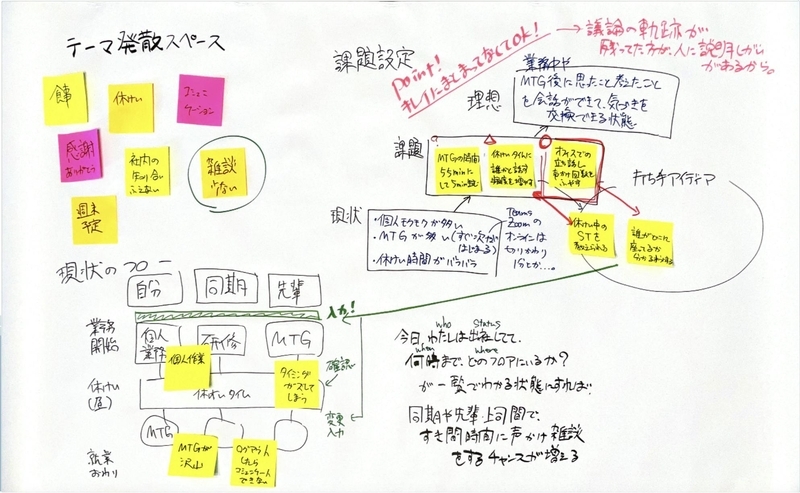 テーマ発散スペース
休けい
コミュニ
ケーション
感謝
ありがとう
社内の
知り合い
ふえない
雑談
少ない
週末
予定
課題設定
Point!
キレイにまとまってなくてOK!
議論の軌跡が
残ってた方が、人に説明しがい
があるから。
理想
業務中や
MTG後に思ったこと考えたこと
を会話ができて、気づきを
交換できる状態。
課題
MTGの時間
55minに
して5min
休けいタイムに
誰かと話す
オフィスでの
立ち話し
声かけ回数を
ふやす
打ち手アイディア
休けい中の
STを
教えられる
誰がどこに
座ってるか
分かるようする
現状
・個人モクモクが多い
・MTGが多い(すぐ次が
はじまる)
・休けい時間がバラバラ
Teams
Zoomの
オンラインは
切りかわり
1分とか…。
現状のフロー
自分
同期
先輩
入力!
業務
開始
個人
業務
研修
MTG
個人作業
休けい
(昼)
休けいタイム
タイミング
がズレて
しまう
確認
変更
入力
就業
おわり
MTG
MTGが
沢山
ログアウト
したら
コミュニケート
できない
who
status
今日、わたしは出社してて、
when
where
何時まで、どのフロアにいるか?
が一覧でわかる状態にすれば
同期や先輩・上司間で、
すき間時間に声かけ雑談
をするチャンスが増える